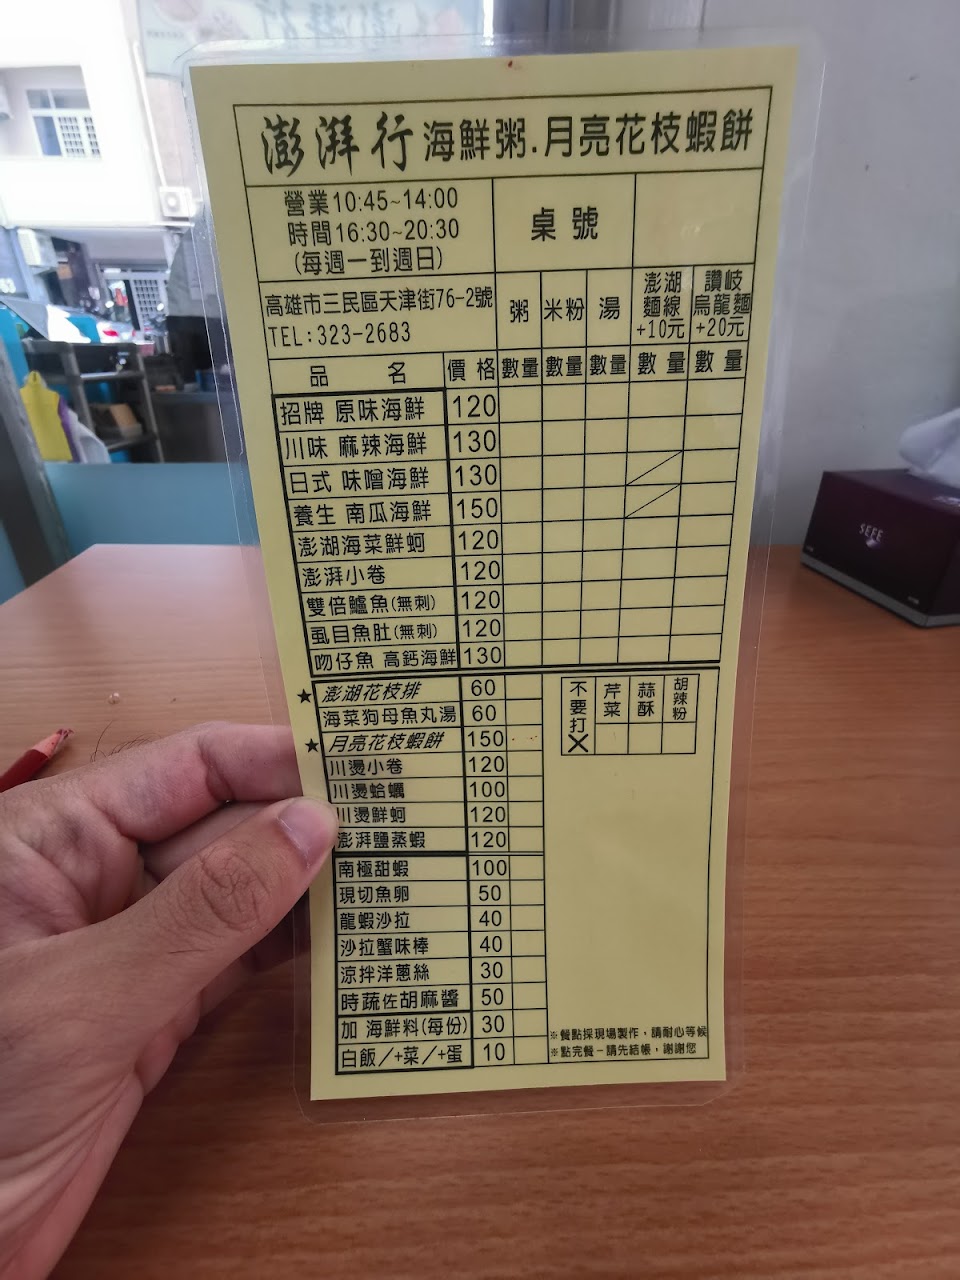 澎湃行 海鮮粥.月亮花枝蝦餅
營業10:45~14:00
時間16:30~20:30
(每週一到週日)
桌號
高雄市三民區天津街76-2號
TEL:323-2683
粥 米粉 湯 澎湖麵線+10元 讚岐烏龍麵+20元
品名 價格 數量 數量 數量 數量 數量
招牌 原味海鮮 120
川味 麻辣海鮮 130
日式 味噌海鮮 130
養生 南瓜海鮮 150
澎湖海菜鮮蚵 120
澎湃小卷 120
雙倍鱸魚(無刺) 120
虱目魚肚(無刺) 120
吻仔魚 高鈣海鮮 130
★ 澎湖花枝排 60
海菜狗母魚丸湯 60
★ 月亮花枝蝦餅 150
川燙小卷 120
川燙蛤蠣 100
川燙鮮蚵 120
澎湃鹽蒸蝦 120
不要打X 芹菜 蒜酥 胡辣粉
南極甜蝦 100
現切魚卵 50
龍蝦沙拉 40
沙拉蟹味棒 40
涼拌洋蔥絲 30
時蔬佐胡麻醬 50
加 海鮮料(每份) 30
白飯/+菜/+蛋 10
※餐點採現場製作,請耐心等候
※點完餐-請先結帳,謝謝您
SEFE